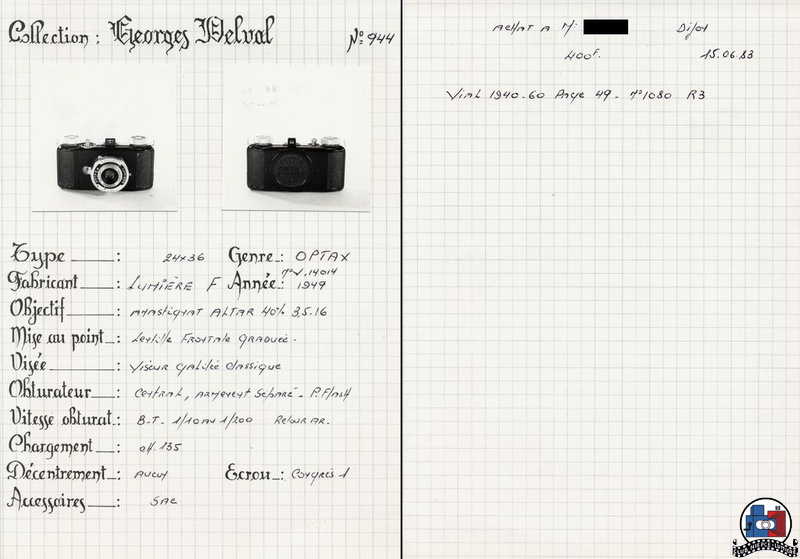 Collection : Georges Delval
N° 944
Type : 24x36 Genre : OPTAX
n° V.14014
Fabricant : LUMIÈRE F Année : 1949
Objectif : ANAStigMAT ALTAR 40% 3,5-16
Mise au point : Lentille FRONTALE GRADUÉE.
Visée : VISEUR GALILÉE CLASSIQUE
Obturateur : CENTRAL, ARMEMENT SÉPARÉ - P.Flash
Vitesse obturat. : B-T. 1/10 AU 1/200 RETARDAR.
Chargement : ch. 135
Décentrement : AUCUN Ecrou : CONGRÈS 1
Accessoires : SAC
ACHAT A Mr DIJON
400F. 15.06.83
VIAL 1940-60 PAGE 49 - N°1080 R3